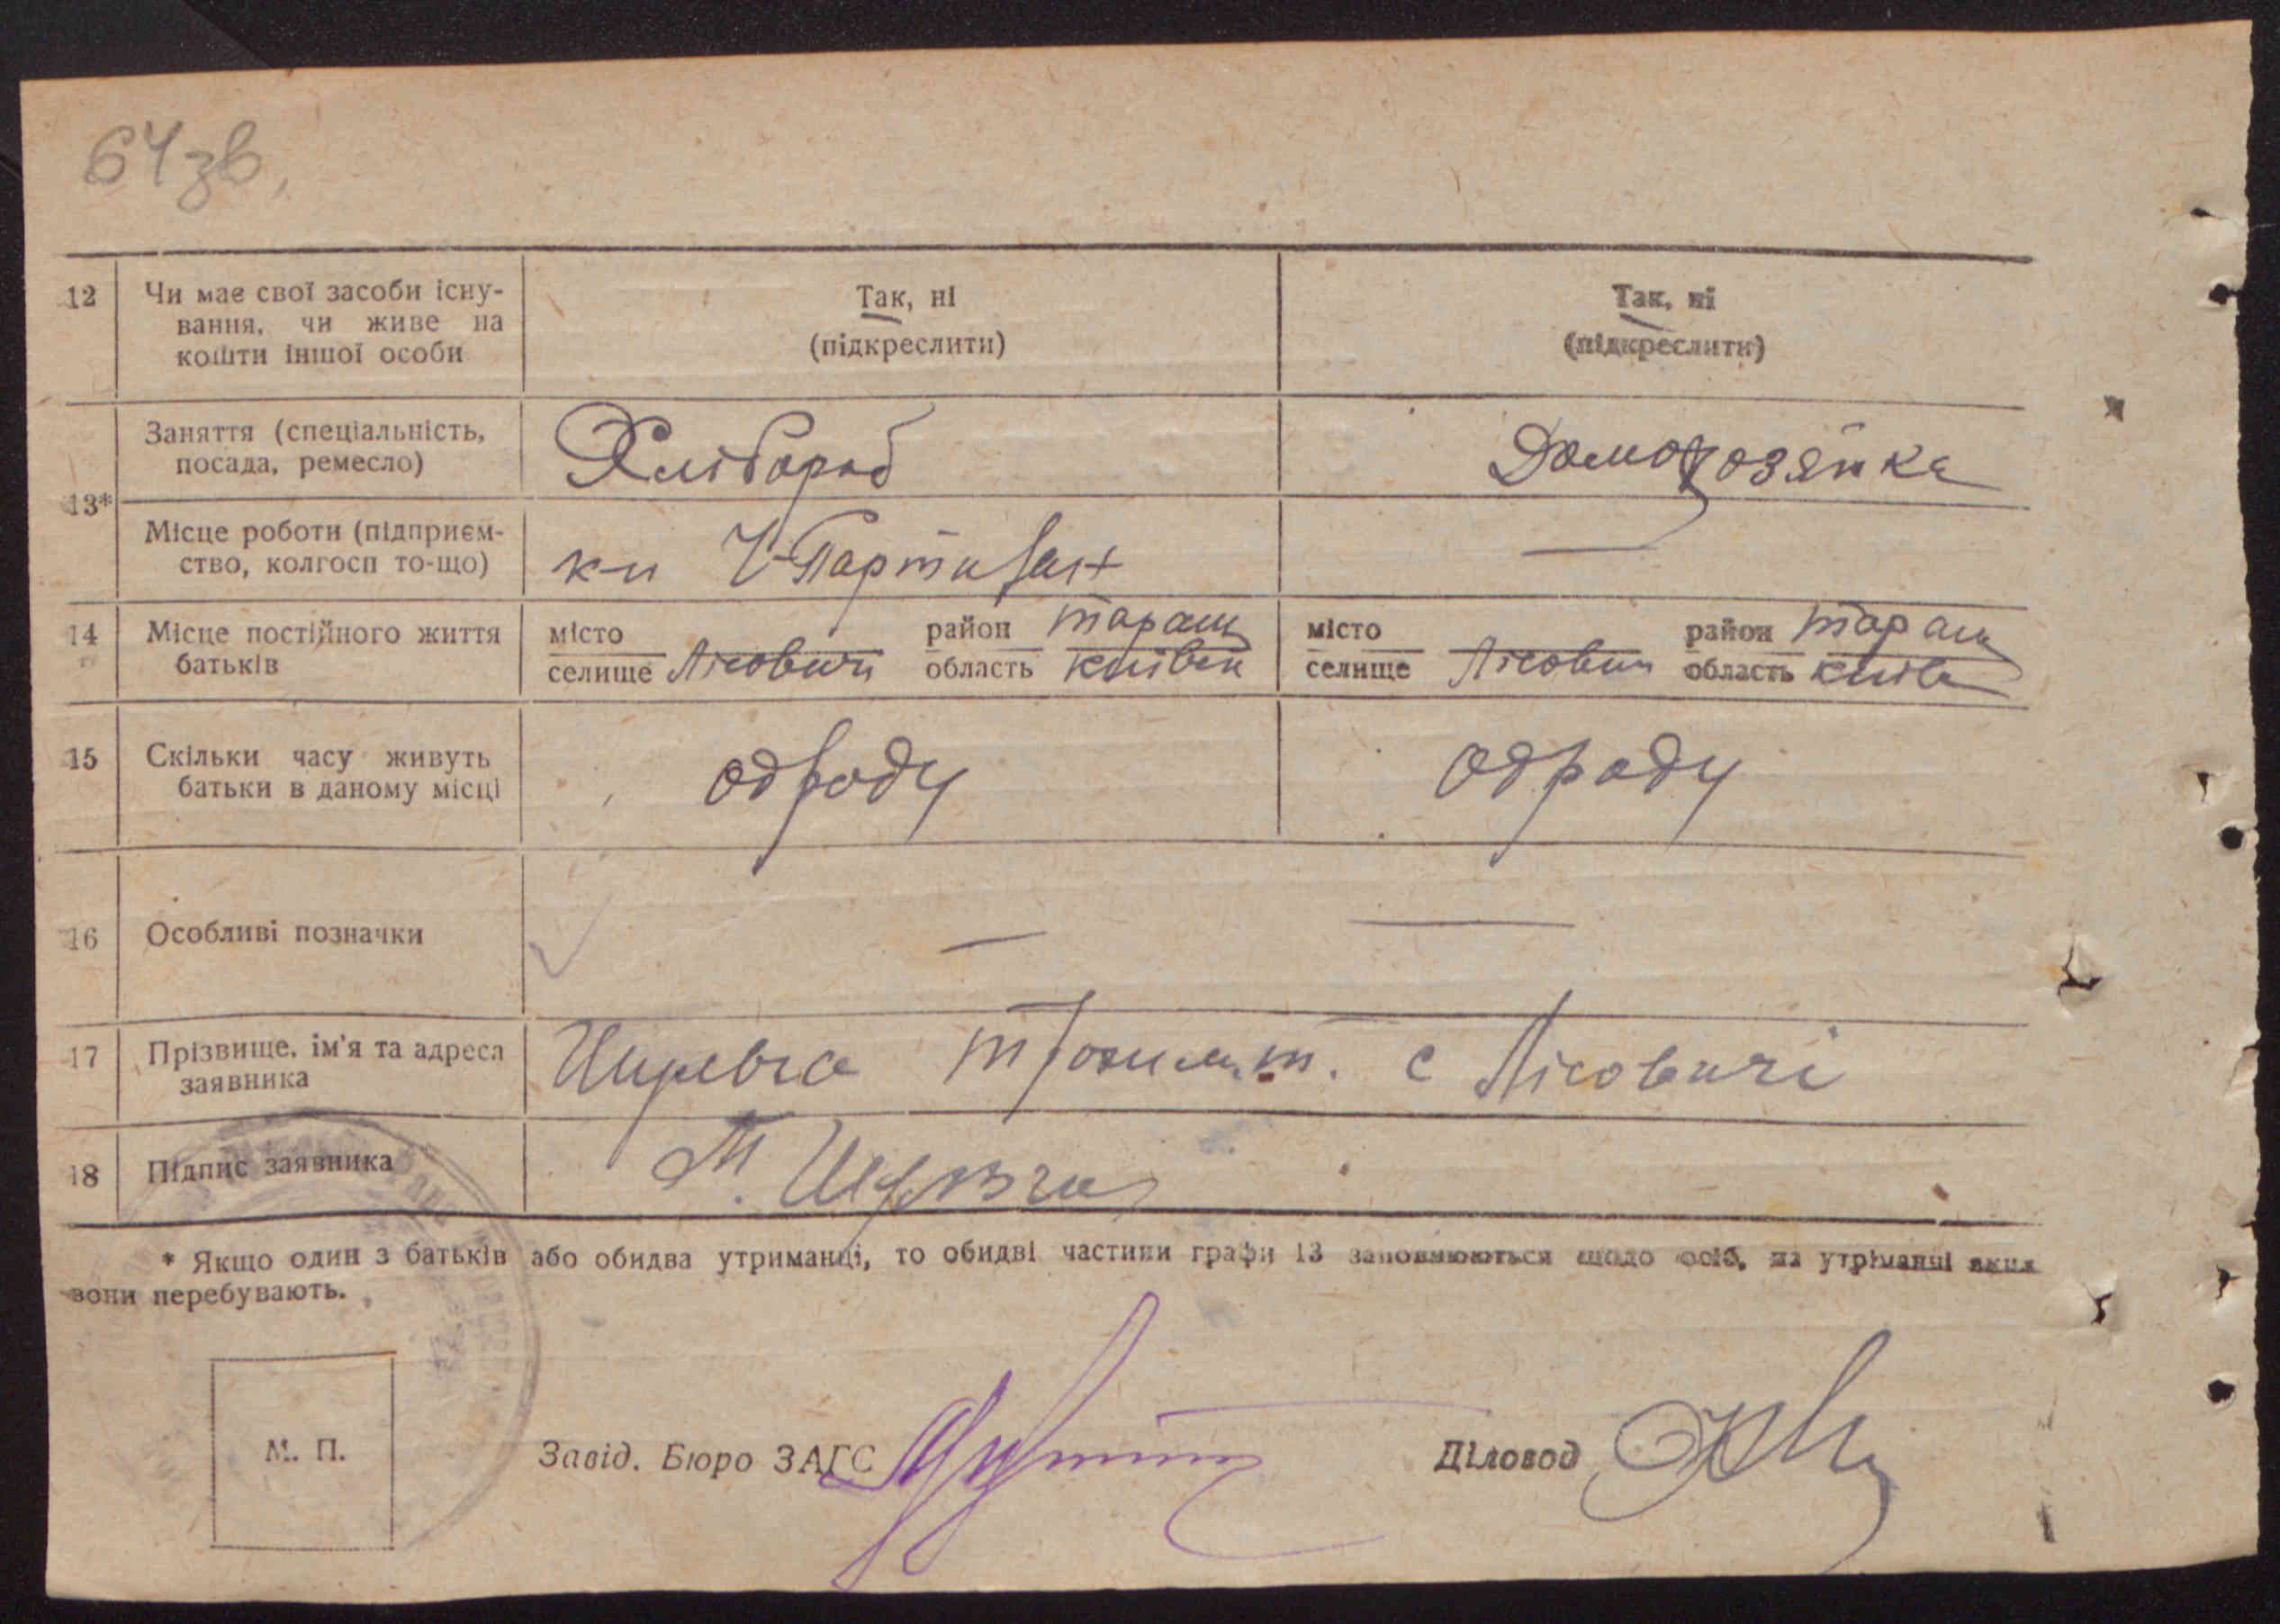 64зв,
12 Чи має свої засоби існу- Так, ні Так, ні
вання, чи живе на
кошти іншої особи (підкреслити) (підкреслити)
Заняття (спеціальність, Хлібороб Домохозяйка
посада, ремесло)
13*
Місце роботи (підприєм- к-п Ч-Партизан —
ство, колгосп то-що)
14 Місце постійного життя місто район Таращ місто район Таращ
батьків селище Лісовичі область Київск селище Лісович область Київ
15 Скільки часу живуть одроду одроду
батьки в даному місці
16 Особливі позначки — —
17 Прізвище, ім'я та адреса с Лісовичі
заявника
18 Підпис заявника
* Якщо один з батьків або обидва утриманці, то обидві частини графи 13 заповнюються щодо осіб, на утриманні яких
вони перебувають.
М. П. Завід. Бюро ЗАГС Діловод